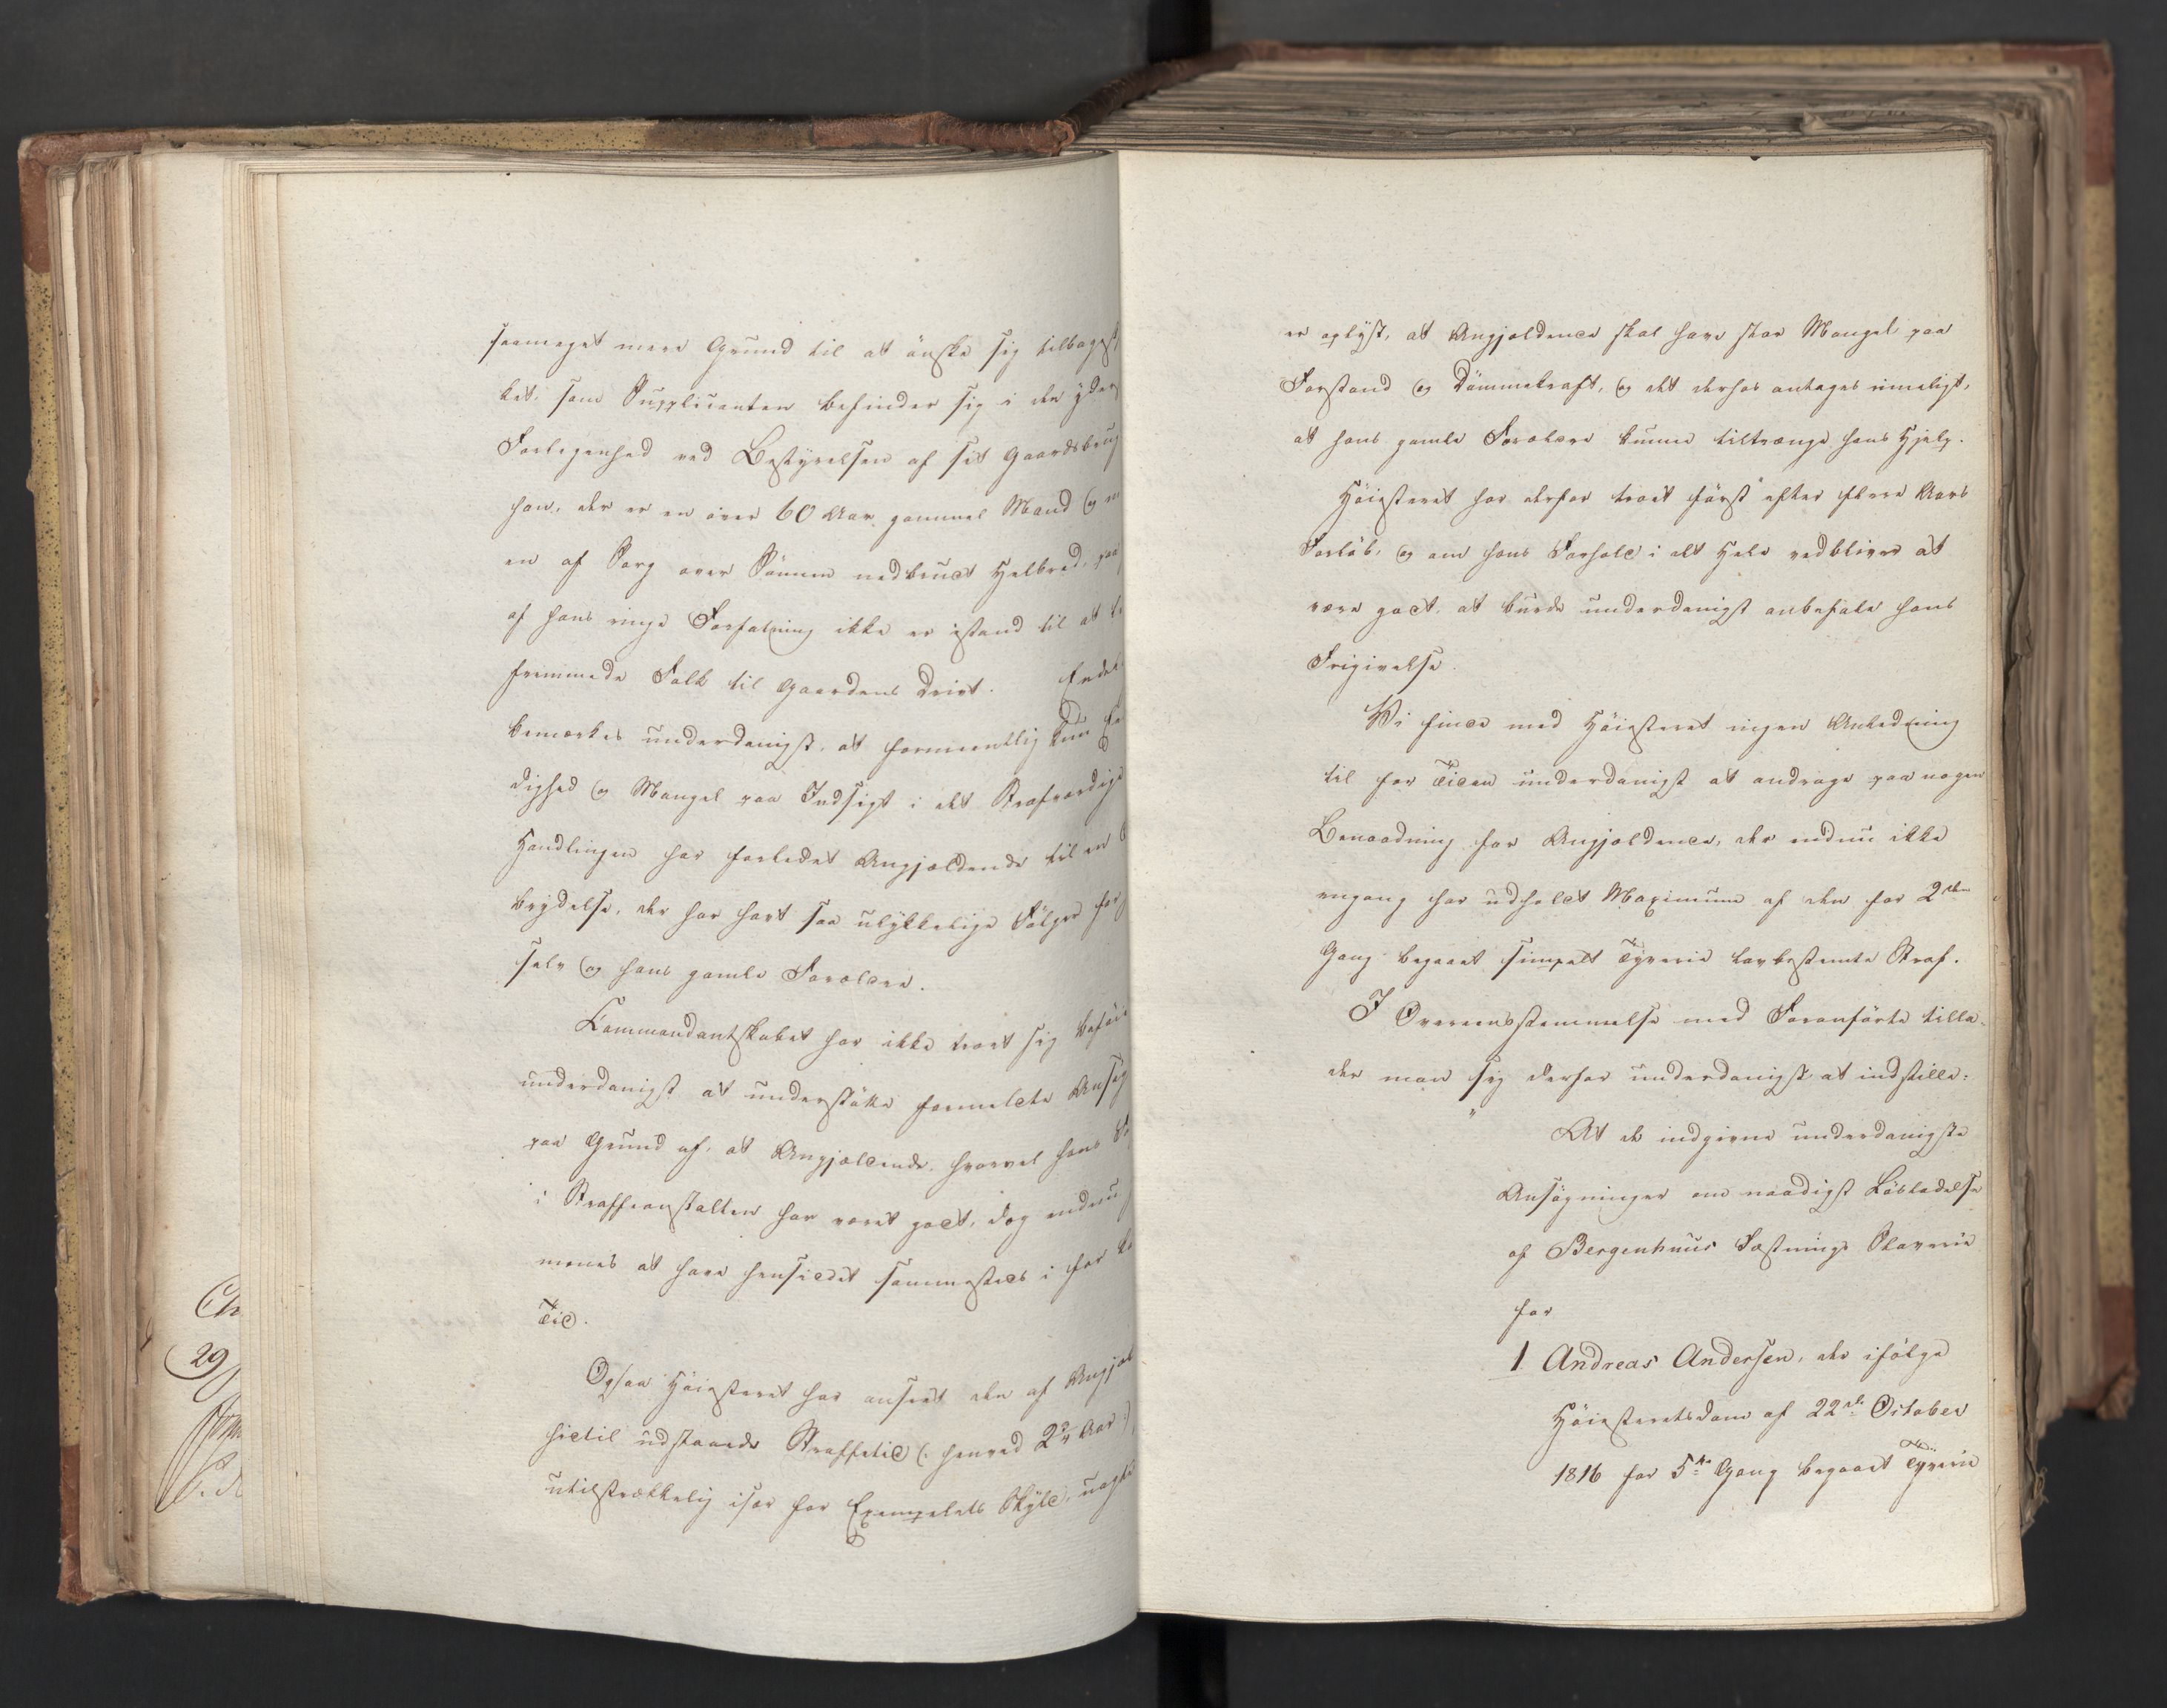 saameget mere Grund til at önske sig tilbagest
ket, som Supplicanten befinder sig i den yder
Forlegenhed ved Bestyrelsen af sit Gaardsbrug
han, der er en over 60 Aar gammel Mand og
en af Sorg over Sönnen nedbrudt Helbred, paa
af hans ringe Forfatning ikke er istand til at
fremmede Folk til Gaardens Drivt. Endel
bemærkes underdanigst, at formeentlig kun
dighed og Mangel paa Indsigt i det Strafværdige
Handlingen har forledet Angjældende til en
brydelse, der har havt saa ulykkelige Fölger for
selv og hans gamle Forældre.
Kommandantskabet har ikke troet sig beföie
underdanigst at understötte formeldte Ansög
paa Grund af, at Angjældende, hvorvel hans
i Straffeanstalten har været godt, dog endnu
menes at have hensiddet sammesteds i for ko
Tid.
Ogsaa Höiesteret har anseet den af Angjæl
hidtil udstaaede Straffetid (: henved 2¾ Aar :)
utilstrækkelig især for Exempelets Skyld, uagte
Ch
29
er oplyst, at Angjældende skal have stor Mangel paa
Forstand og Dömmekraft, og det derhos antages rimeligt,
at hans gamle Forældre kunne tiltrænge hans Hjelp.
Höiesteret har derfor troet först efter flere Aars
Forlöb, og om hans Forhold i det Hele vedbliver at
være godt, at burde underdanigst anbefale hans
Frigivelse.
Vi finde med Höiesteret ingen Anledning
til for Tiden underdanigst at andrage paa nogen
Benaadning for Angjældende, der endnu ikke
engang har udholdt Maximum af den for 2den
Gang begaaet simpelt Tyverie lovbestemte Straf.
I Overeensstemmelse med Foranförte tilla-
der man sig derfor underdanigst at indstille:
"At de indgivne underdanigste
Ansögninger om naadigst Lösladelse
af Bergenhuus Fæstnings Slaverie
for
1 Andreas Andersen, der ifölge
Höiesteretsdom af 22de October
1816 for 5te Gang begaaet Tyverie